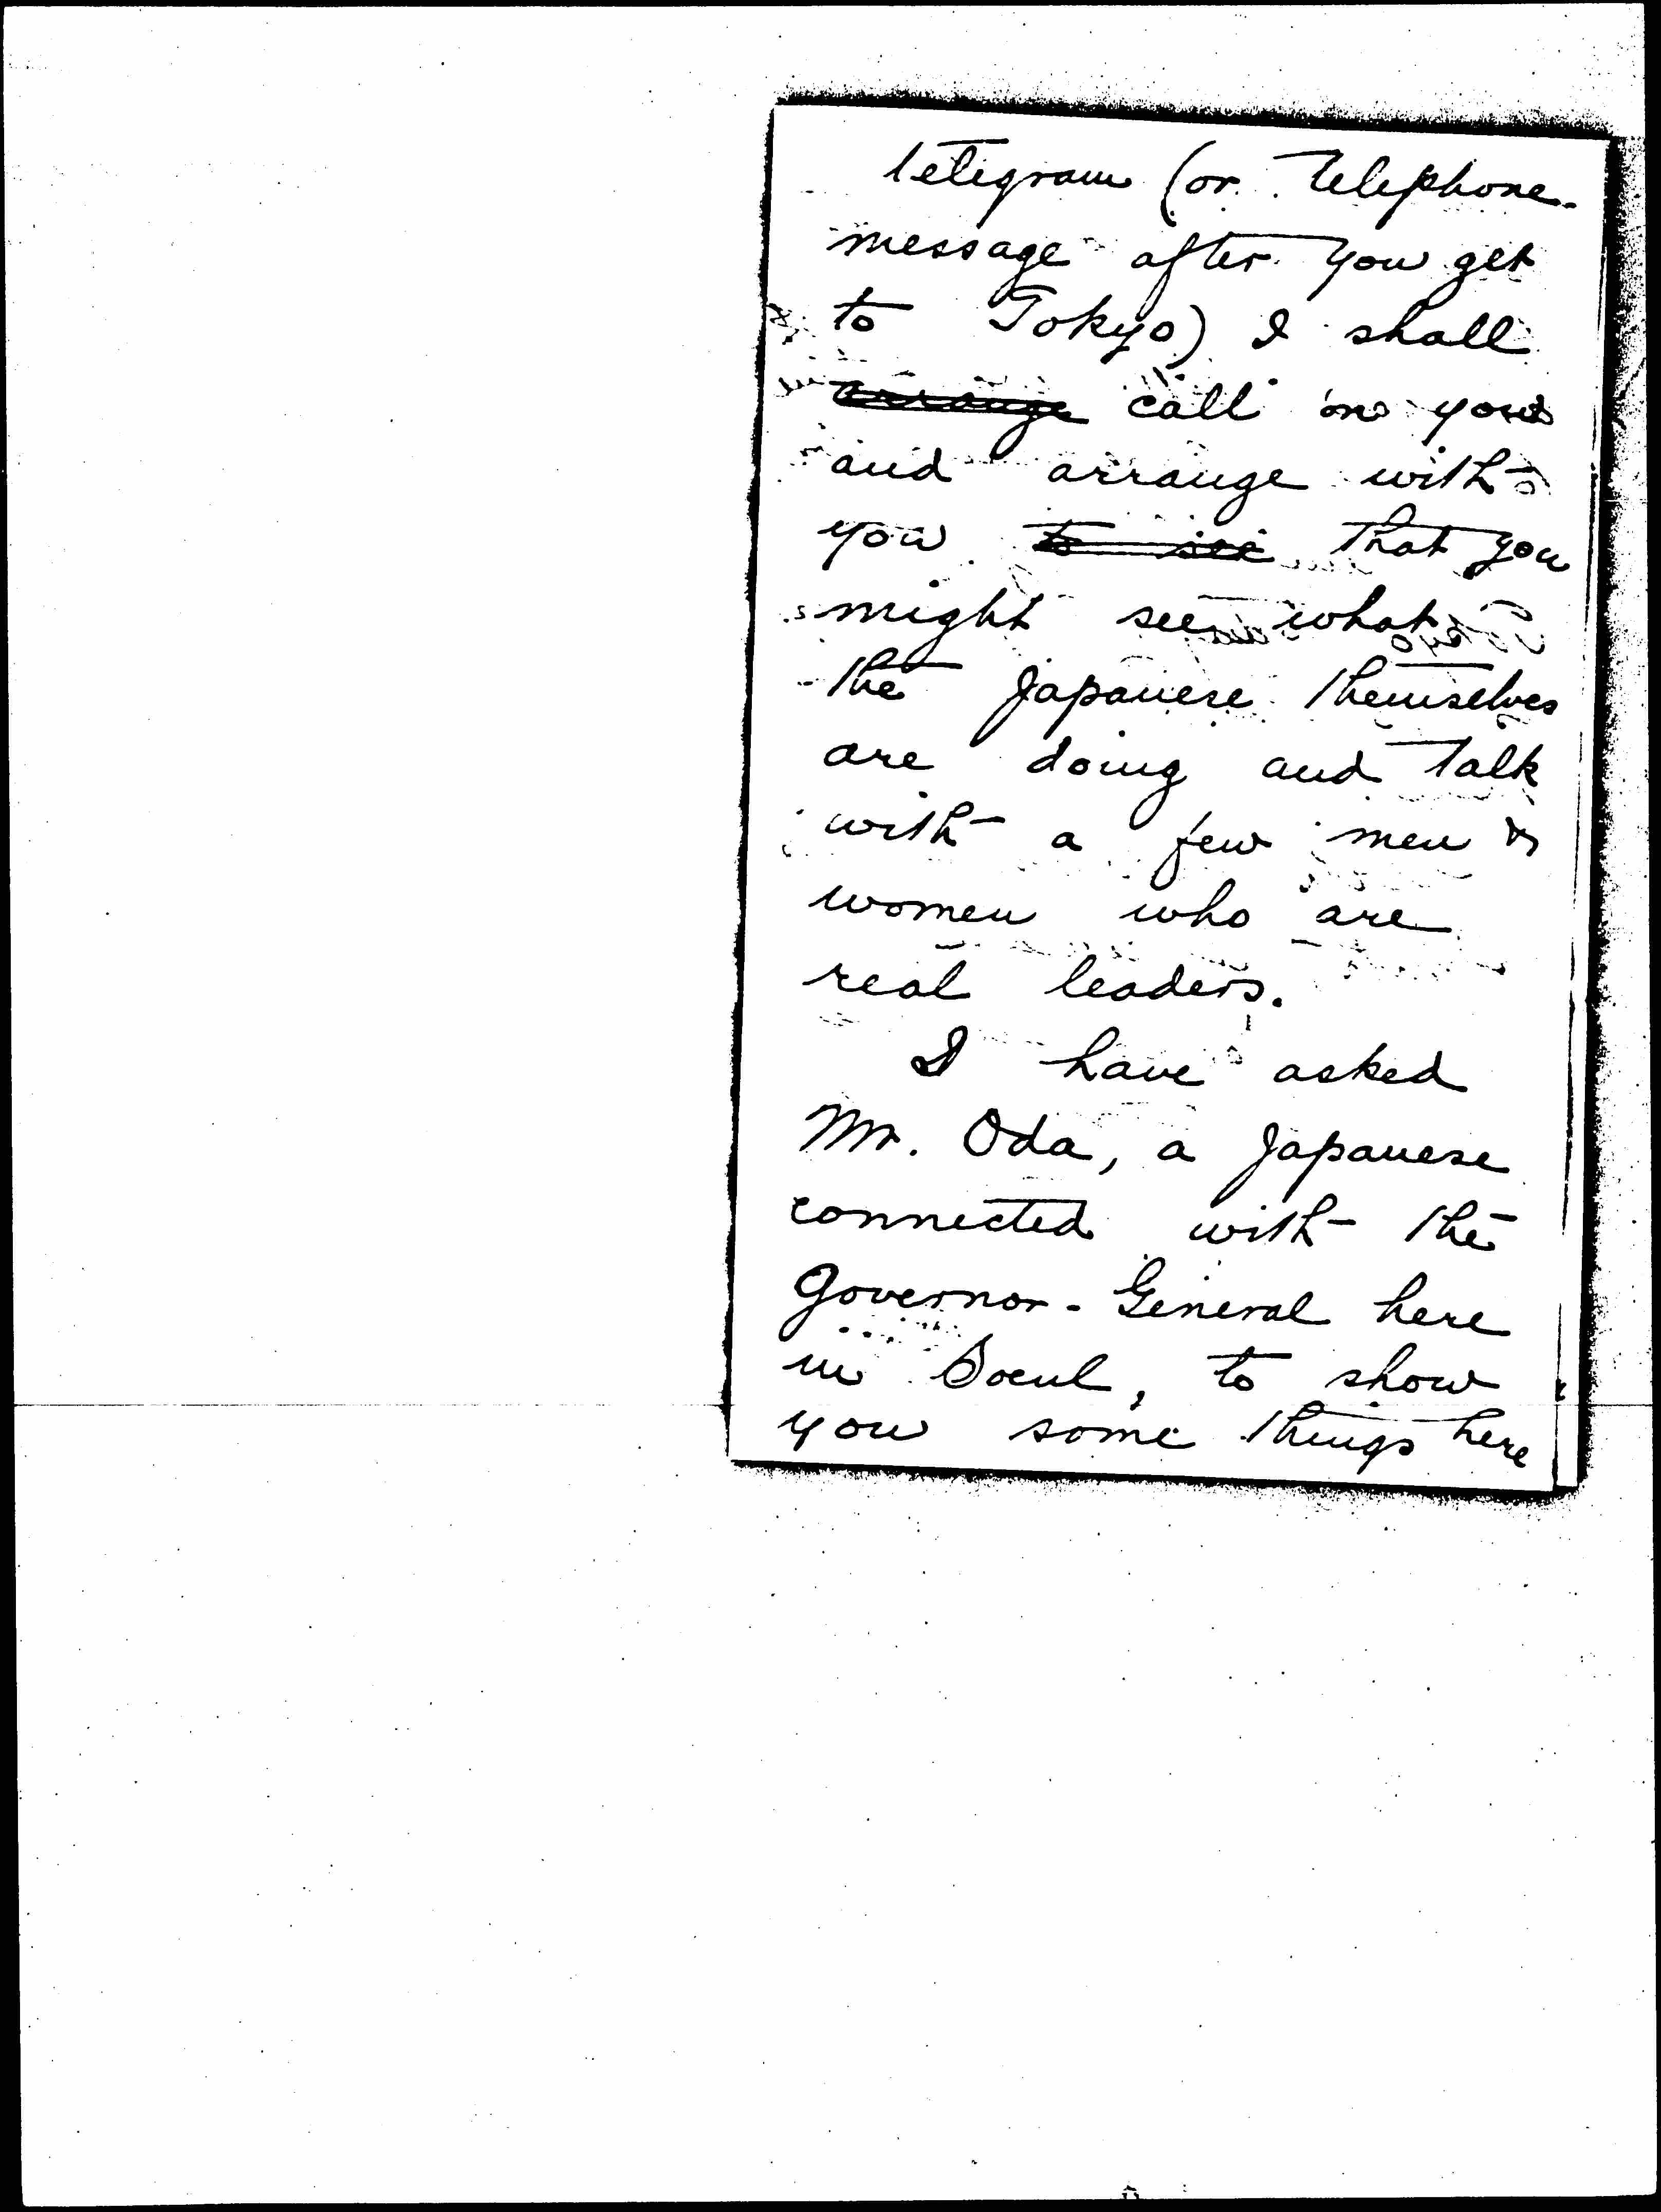 telegram (or telephone
message after you get
to Tokyo) I shall
arrange call on you
and arrange with
you to see that you
might see what
the Japanese themselves
are doing and talk
with a few men &
women who are
real leaders.
I have asked
Mr. Oda, a Japanese
connected with the
Governor-General here
in Soeul, to show
you some things here